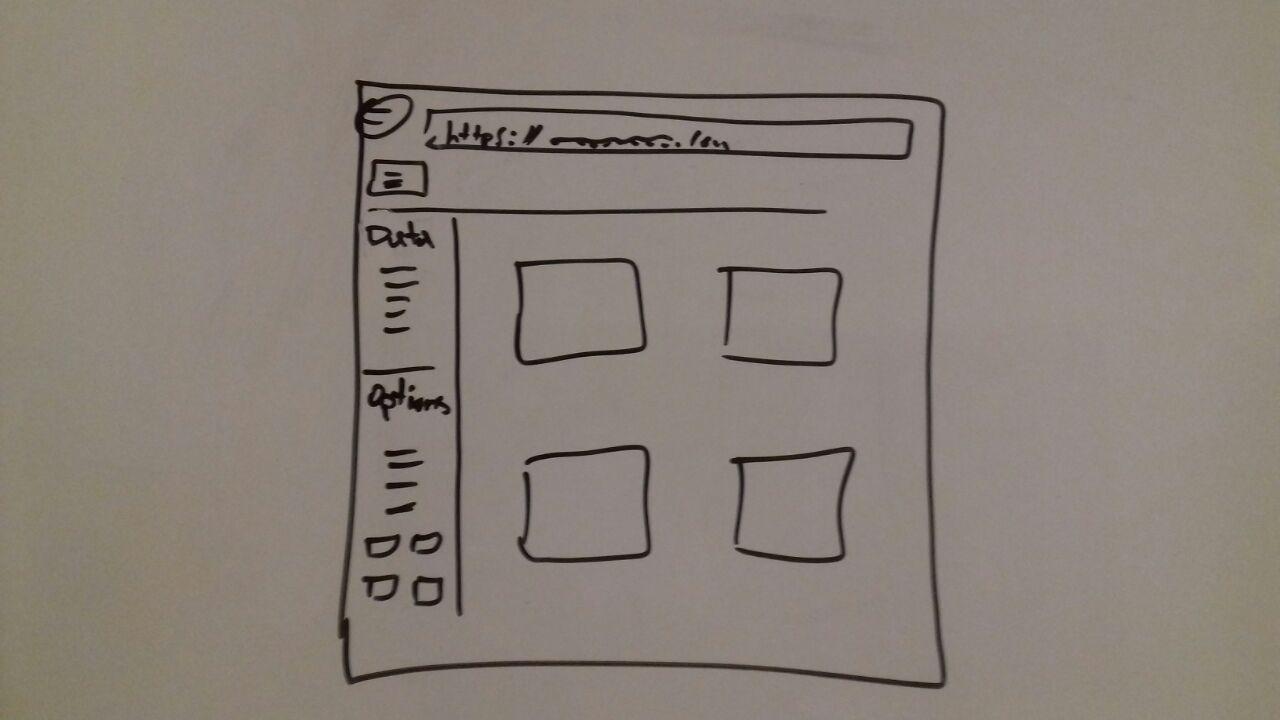 https://
Data
Options